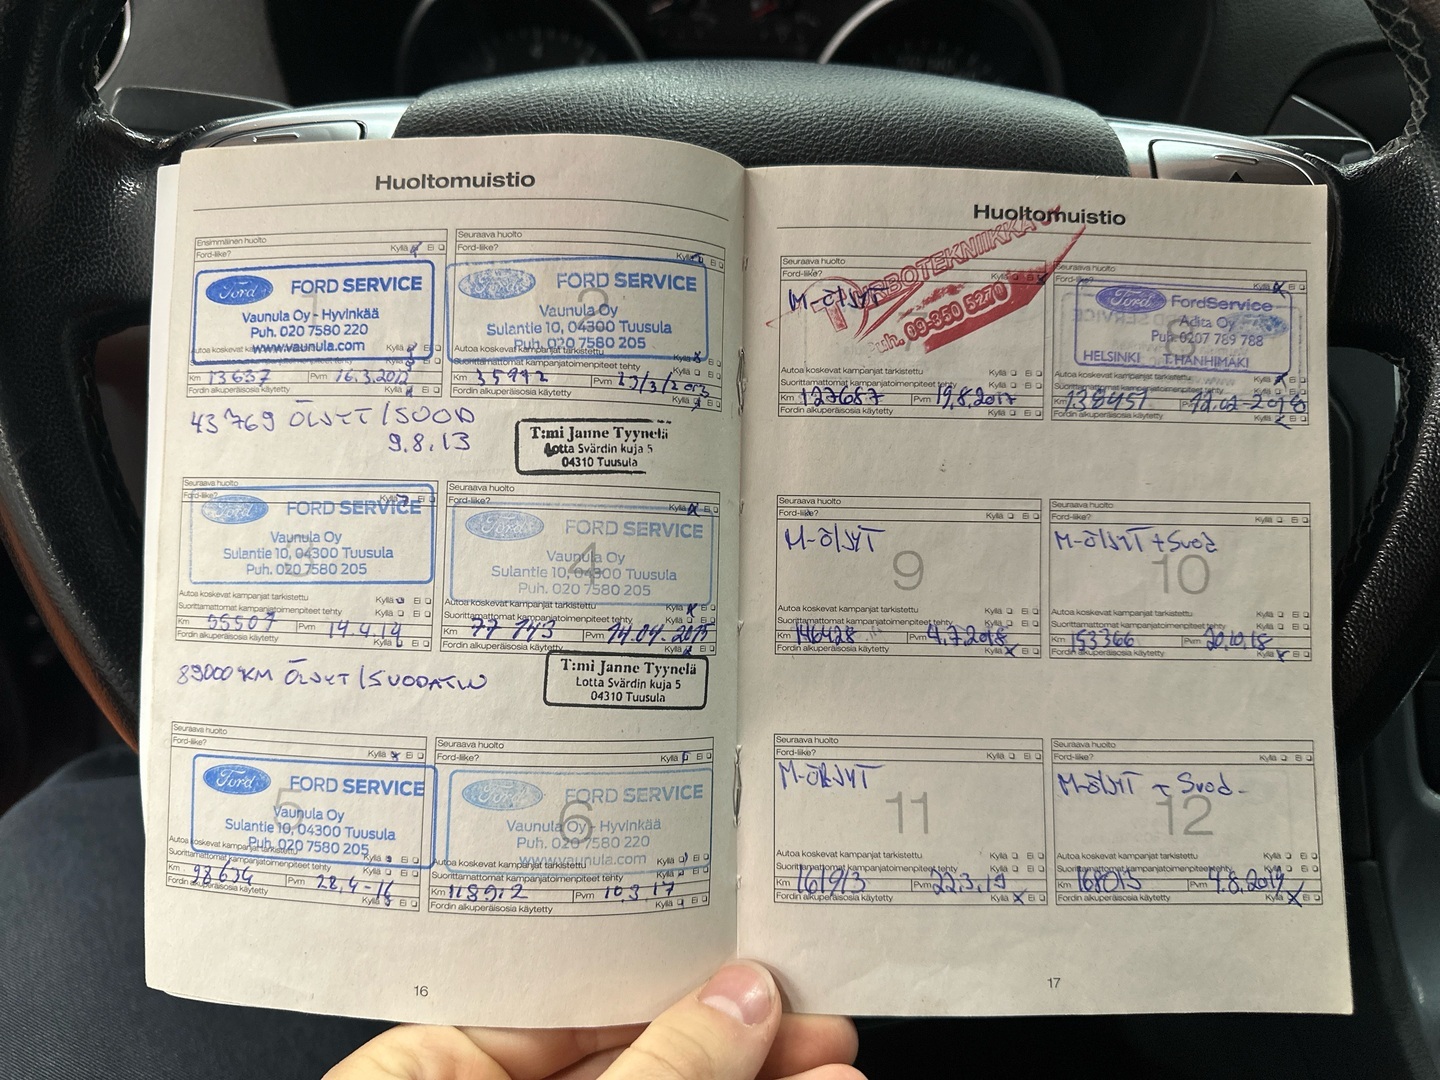 Huoltomuistio
Ensimmäinen huolto
Ford-liike? Kyllä Ei
Ford FORD SERVICE
1
Vaunula Oy - Hyvinkää
Puh. 020 7580 220
www.vaunula.com
Autoa koskevat kampanjat tarkistettu Kyllä Ei
Km 13637 Pvm 16.3.2012
Fordin alkuperäisosia käytetty Kyllä Ei
Seuraava huolto
Ford-liike? Kyllä Ei
Ford FORD SERVICE
2
Vaunula Oy
Sulantie 10, 04300 Tuusula
Puh. 020 7580 205
Autoa koskevat kampanjat tarkistettu
Suorittamattomat kampanjatoimenpiteet tehty Kyllä Ei
Km 35942 Pvm
Fordin alkuperäisosia käytetty Kyllä Ei
43769 ÖLJYT/SUOD
9.8.13
T:mi Janne Tyynelä
Lotta Svärdin kuja 5
04310 Tuusula
Seuraava huolto
Ford-liike? Kyllä Ei
Ford FORD SERVICE
3
Vaunula Oy
Sulantie 10, 04300 Tuusula
Puh. 020 7580 205
Autoa koskevat kampanjat tarkistettu Kyllä Ei
Suorittamattomat kampanjatoimenpiteet tehty Kyllä Ei
Km 55507 Pvm 14.4.14
Fordin alkuperäisosia käytetty Kyllä Ei
Seuraava huolto
Ford-liike? Kyllä Ei
Ford FORD SERVICE
4
Vaunula Oy
Sulantie 10, 04300 Tuusula
Puh. 020 7580 205
Autoa koskevat kampanjat tarkistettu Kyllä Ei
Suorittamattomat kampanjatoimenpiteet tehty Kyllä Ei
Km 77 743 Pvm 14.04.2015
Fordin alkuperäisosia käytetty Kyllä Ei
89000KM ÖLJYT/SUODATIN
T:mi Janne Tyynelä
Lotta Svärdin kuja 5
04310 Tuusula
Seuraava huolto
Ford-liike? Kyllä Ei
Ford FORD SERVICE
5
Vaunula Oy
Sulantie 10, 04300 Tuusula
Puh. 020 7580 205
Autoa koskevat kampanjat tarkistettu Kyllä Ei
Suorittamattomat kampanjatoimenpiteet tehty Kyllä Ei
Km 98634 Pvm 28.4-16
Fordin alkuperäisosia käytetty Kyllä Ei
Seuraava huolto
Ford-liike? Kyllä Ei
Ford FORD SERVICE
6
Vaunula Oy - Hyvinkää
Puh. 020 7580 220
www.vaunula.com
Autoa koskevat kampanjat tarkistettu Kyllä Ei
Suorittamattomat kampanjatoimenpiteet tehty Kyllä Ei
Km 118912 Pvm 10.3.17
Fordin alkuperäisosia käytetty Kyllä Ei
16
Huoltomuistio
Seuraava huolto
Ford-liike?
M-ÖljyT
TURBOTEKNIIKKA
Puh. 09-350 5270
Autoa koskevat kampanjat tarkistettu Kyllä Ei
Suorittamattomat kampanjatoimenpiteet tehty Kyllä Ei
Km 127687 Pvm 19.8.2017
Fordin alkuperäisosia käytetty Kyllä Ei
Seuraava huolto
Ford-liike? Kyllä Ei
Ford FordService
Adita Oy
Puh. 0207 789 788
HELSINKI T.HANHIMÄKI
Autoa koskevat kampanjat tarkistettu Kyllä Ei
Suorittamattomat kampanjatoimenpiteet tehty Kyllä Ei
Km 138451 Pvm
Fordin alkuperäisosia käytetty Kyllä Ei
Seuraava huolto
Ford-liike? Kyllä Ei
M-öljyT
9
Autoa koskevat kampanjat tarkistettu Kyllä Ei
Suorittamattomat kampanjatoimenpiteet tehty Kyllä Ei
Km 146428 Pvm 4.7.2018
Fordin alkuperäisosia käytetty Kyllä Ei
Seuraava huolto
Ford-liike? Kyllä Ei
M-öljyT + Suod
10
Autoa koskevat kampanjat tarkistettu Kyllä Ei
Suorittamattomat kampanjatoimenpiteet tehty Kyllä Ei
Km 153366 Pvm 20.10.18
Fordin alkuperäisosia käytetty Kyllä Ei
Seuraava huolto
Ford-liike? Kyllä Ei
M-öljyT
11
Autoa koskevat kampanjat tarkistettu Kyllä Ei
Suorittamattomat kampanjatoimenpiteet tehty Kyllä Ei
Km 161913 Pvm 22.3.19
Fordin alkuperäisosia käytetty Kyllä Ei
Seuraava huolto
Ford-liike? Kyllä Ei
M-öljyT + Suod.
12
Autoa koskevat kampanjat tarkistettu Kyllä Ei
Suorittamattomat kampanjatoimenpiteet tehty Kyllä Ei
Km 168015 Pvm 4.8.2019
Fordin alkuperäisosia käytetty Kyllä Ei
17